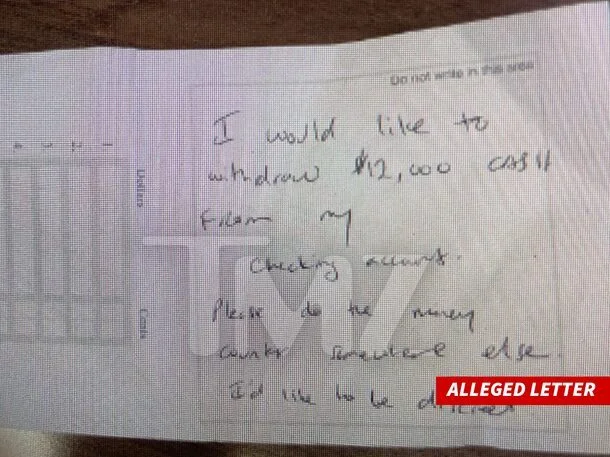 Do not write in this area
I would like to
withdraw $12,000 CASH
from my
checking account.
Please do the money
count somewhere else.
I'd like to be
ALLEGED LETTER
Dollars
Cents
TMZ